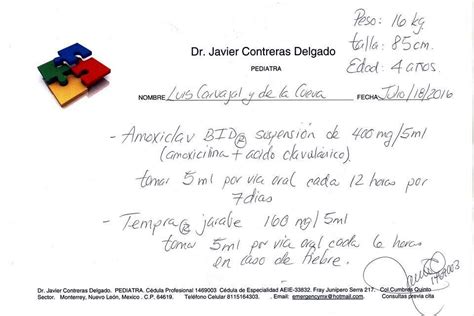 Peso: 16 kg.
talla: 85cm.
Edad: 4 años.
Dr. Javier Contreras Delgado
PEDIATRA
NOMBRE Luis Carvajal y de la Cueva FECHA Julio/18/2016
- Amoxiclav BID® suspensión de 400mg/5ml
(amoxicilina + acido clavulánico)
tomar 5ml por via oral cada 12 horas por
7dias
- Tempra® jarabe 160 mg/5ml
tomar 5ml por via oral cada 6 horas
en caso de fiebre.
1469003
Dr. Javier Contreras Delgado. PEDIATRA. Cédula Profesional 1469003 Cédula de Especialidad AEIE-33832. Fray Junípero Serra 217. Col Cumbres Quinto
Sector. Monterrey, Nuevo León, Mexico . C.P. 64619. Teléfono Celular 8115164303. Email: emergencymx@hotmail.com. Consultas previa cita